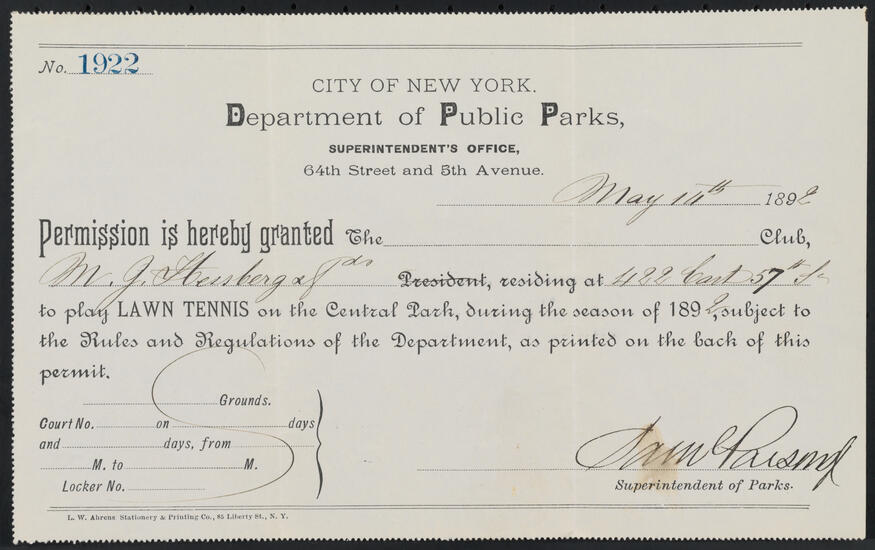 No. 1922
CITY OF NEW YORK.
Department of Public Parks,
SUPERINTENDENT'S OFFICE,
64th Street and 5th Avenue.
May 14th 1892
Permission is hereby granted The Club,
M. J. President, residing at 422 East 57th St
to play LAWN TENNIS on the Central Park, during the season of 1892, subject to
the Rules and Regulations of the Department, as printed on the back of this
permit.
Grounds.
Court No. on days
and days, from
M. to M.
Locker No.
Saml Parsons Jr
Superintendent of Parks.
L. W. Ahrens Stationery & Printing Co., 85 Liberty St., N. Y.